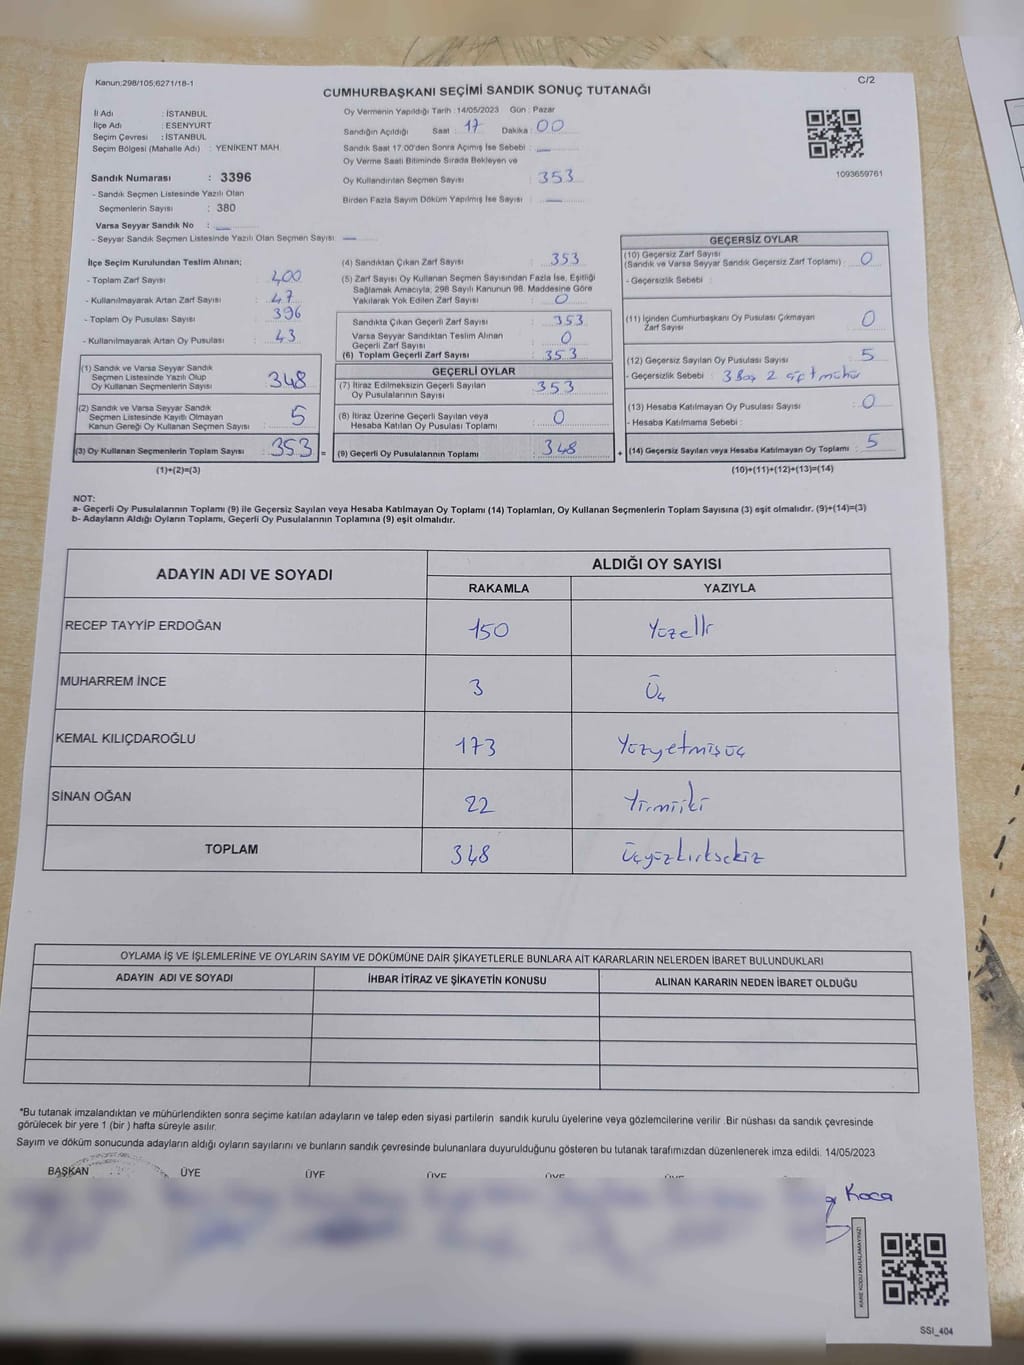 Kanun;298/105;6271/18-1
C/2
CUMHURBAŞKANI SEÇİMİ SANDIK SONUÇ TUTANAĞI
İl Adı : İSTANBUL
İlçe Adı : ESENYURT
Seçim Çevresi : İSTANBUL
Seçim Bölgesi (Mahalle Adı) : YENİKENT MAH.
Sandık Numarası : 3396
- Sandık Seçmen Listesinde Yazılı Olan
Seçmenlerin Sayısı : 380
Varsa Seyyar Sandık No :
- Seyyar Sandık Seçmen Listesinde Yazılı Olan Seçmen Sayısı:
Oy Vermenin Yapıldığı Tarih : 14/05/2023 Gün : Pazar
Sandığın Açıldığı Saat : 17 Dakika : 00
Sandık Saat 17.00'den Sonra Açımış İse Sebebi :
Oy Verme Saati Bitiminde Sırada Bekleyen ve
Oy Kullandırılan Seçmen Sayısı : 353
Birden Fazla Sayım Döküm Yapılmış İse Sayısı :
1093659761
İlçe Seçim Kurulundan Teslim Alınan;
- Toplam Zarf Sayısı : 400
- Kullanılmayarak Artan Zarf Sayısı : 47
- Toplam Oy Pusulası Sayısı : 396
- Kullanılmayarak Artan Oy Pusulası : 43
(1) Sandık ve Varsa Seyyar Sandık
Seçmen Listesinde Yazılı Olup
Oy Kullanan Seçmenlerin Sayısı : 348
(2) Sandık ve Varsa Seyyar Sandık
Seçmen Listesinde Kayıtlı Olmayan
Kanun Gereği Oy Kullanan Seçmen Sayısı : 5
(3) Oy Kullanan Seçmenlerin Toplam Sayısı : 353 =
(1)+(2)=(3)
(4) Sandıktan Çıkan Zarf Sayısı : 353
(5) Zarf Sayısı Oy Kullanan Seçmen Sayısından Fazla İse, Eşitliği
Sağlamak Amacıyla; 298 Sayılı Kanunun 98. Maddesine Göre
Yakılarak Yok Edilen Zarf Sayısı : 0
Sandıkta Çıkan Geçerli Zarf Sayısı : 353
Varsa Seyyar Sandıktan Teslim Alınan
Geçerli Zarf Sayısı : 0
(6) Toplam Geçerli Zarf Sayısı : 353
GEÇERLİ OYLAR
(7) İtiraz Edilmeksizin Geçerli Sayılan
Oy Pusulasının Sayısı : 353
(8) İtiraz Üzerine Geçerli Sayılan veya
Hesaba Katılan Oy Pusulası Toplamı : 0
(9) Geçerli Oy Pusulalarının Toplamı : 348 +
GEÇERSİZ OYLAR
(10) Geçersiz Zarf Sayısı
(Sandık ve Varsa Seyyar Sandık Geçersiz Zarf Toplamı) : 0
- Geçersizlik Sebebi :
(11) İçinden Cumhurbaşkanı Oy Pusulası Çıkmayan
Zarf Sayısı : 0
(12) Geçersiz Sayılan Oy Pusulası Sayısı : 5
- Geçersizlik Sebebi : 3 Boş 2 çift mühür
(13) Hesaba Katılmayan Oy Pusulası Sayısı : 0
- Hesaba Katılmama Sebebi :
(14) Geçersiz Sayılan veya Hesaba Katılmayan Oy Toplamı : 5
(10)+(11)+(12)+(13)=(14)
NOT:
a- Geçerli Oy Pusulalarının Toplamı (9) ile Geçersiz Sayılan veya Hesaba Katılmayan Oy Toplamı (14) Toplamları, Oy Kullanan Seçmenlerin Toplam Sayısına (3) eşit olmalıdır. (9)+(14)=(3)
b- Adayların Aldığı Oyların Toplamı, Geçerli Oy Pusulalarının Toplamına (9) eşit olmalıdır.
ADAYIN ADI VE SOYADI
ALDIĞI OY SAYISI
RAKAMLA YAZIYLA
RECEP TAYYİP ERDOĞAN 150 Yüzelli
MUHARREM İNCE 3 Üç
KEMAL KILIÇDAROĞLU 173 Yüzyetmişüç
SİNAN OĞAN 22 Yirmiiki
TOPLAM 348 Üçyüzkırksekiz
OYLAMA İŞ VE İŞLEMLERİNE VE OYLARIN SAYIM VE DÖKÜMÜNE DAİR ŞİKAYETLERLE BUNLARA AİT KARARLARIN NELERDEN İBARET BULUNDUKLARI
ADAYIN ADI VE SOYADI İHBAR İTİRAZ VE ŞİKAYETİN KONUSU ALINAN KARARIN NEDEN İBARET OLDUĞU
*Bu tutanak imzalandıktan ve mühürlendikten sonra seçime katılan adayların ve talep eden siyasi partilerin sandık kurulu üyelerine veya gözlemcilerine verilir. Bir nüshası da sandık çevresinde
görülecek bir yere 1 (bir ) hafta süreyle asılır.
Sayım ve döküm sonucunda adayların aldığı oyların sayılarını ve bunların sandık çevresinde bulunanlara duyurulduğunu gösteren bu tutanak tarafımızdan düzenlenerek imza edildi. 14/05/2023
BAŞKAN ÜYE ÜYE ÜYE ÜYE ÜYE
Koca
KARE KODU KARALAMAYINIZ!
SSI_404